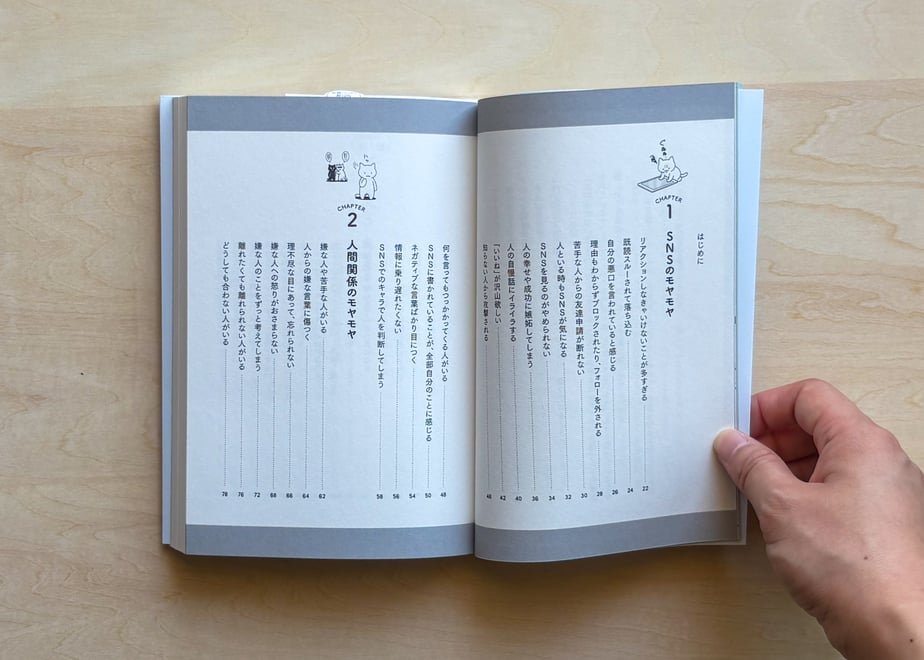 はじめに
CHAPTER
1 SNSのモヤモヤ
リアクションしなきゃいけないことが多すぎる 22
既読スルーされて落ち込む 24
自分の悪口を言われていると感じる 26
理由もわからずブロックされたり、フォローを外される 28
苦手な人からの友達申請が断れない 30
人といる時もSNSが気になる 32
SNSを見るのがやめられない 34
人の幸せや成功に嫉妬してしまう 36
人の自慢話にイライラする 40
「いいね」が沢山欲しい 42
知らない人から攻撃される 46
何を言ってもつっかかってくる人がいる 48
SNSに書かれていることが、全部自分のことに感じる 50
ネガティブな言葉ばかり目につく 54
情報に乗り遅れたくない 56
SNSでのキャラで人を判断してしまう 58
CHAPTER
2 人間関係のモヤモヤ
嫌な人や苦手な人がいる 62
人からの嫌な言葉に傷つく 64
理不尽な目にあって、忘れられない 66
嫌な人への怒りがおさまらない 68
嫌な人のことをずっと考えてしまう 72
離れたくても離れられない人がいる 76
どうしても合わない人がいる 78